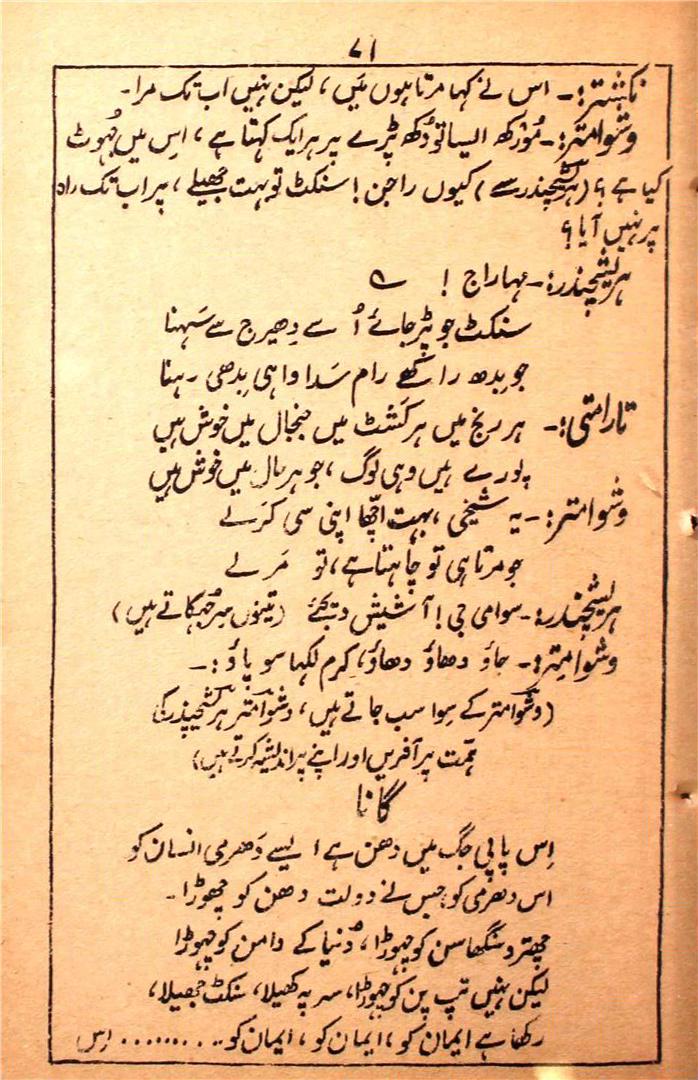 ۷۱
نکشتر:۔ اس نے کہا مرتا ہوں مَیں ، لیکن نہیں اب تک مرا۔
وشوامتر:۔ مُورکھ ایسا تو دُکھ پڑے پر ہر ایک کہتا ہے ، اِس میں جُھوٹ
کیا ہے ؟ (ہریشچندر سے) کیوں راجن ! سنکٹ تو بہت جھیلے ، پر اب تک راہ
پر نہیں آیا ؟
ہریشچندر:۔ مہاراج ! ؎
سنکٹ جو پڑ جائے اُسے دِھیرج سے سَہنا
جو بِدھ راکھے رام سَدا واہی بِدھی رہنا
تارامتی:۔ ہر رنج میں ہر کَشٹ میں جنجال میں خوش ہیں
پورے ہیں وہی لوگ ، جو ہر حال میں خوش ہیں
وشوامتر:۔ یہ شیخی ، بہت اچّھا اپنی سی کر لے
جو مرتا ہی تو چاہتا ہے ، تو مَر لے
ہریشچندر:۔ سوامی جی ! آشیش دیجئے (تینوں سر جُھکاتے ہیں)
وشوامتر:۔ جاؤ دھاؤ دھاؤ، کرم لکھا سو پاؤ :۔
(وشوامتر کے سِوا سب جاتے ہیں ، وشوامتر ہریشچندر کی
ہمّت پر آفریں اور اپنے پر اندیشہ کرتے ہیں)
گانا
اِس پاپی جگ میں دھن ہے ایسے دَھرمی انسان کو
اس دھرمی کو جس نے دولت دھن کو چھوڑا۔
چھتر و سنگھاسن کو چھوڑا ، دُنیا کے دامن کو چھوڑا
لیکن نہیں تپ پن کو چھوڑا، سر پہ کھیلا، سنکٹ جھیلا،
رکھا ہے ایمان کو ، ایمان کو ، ایمان کو ......... اِس